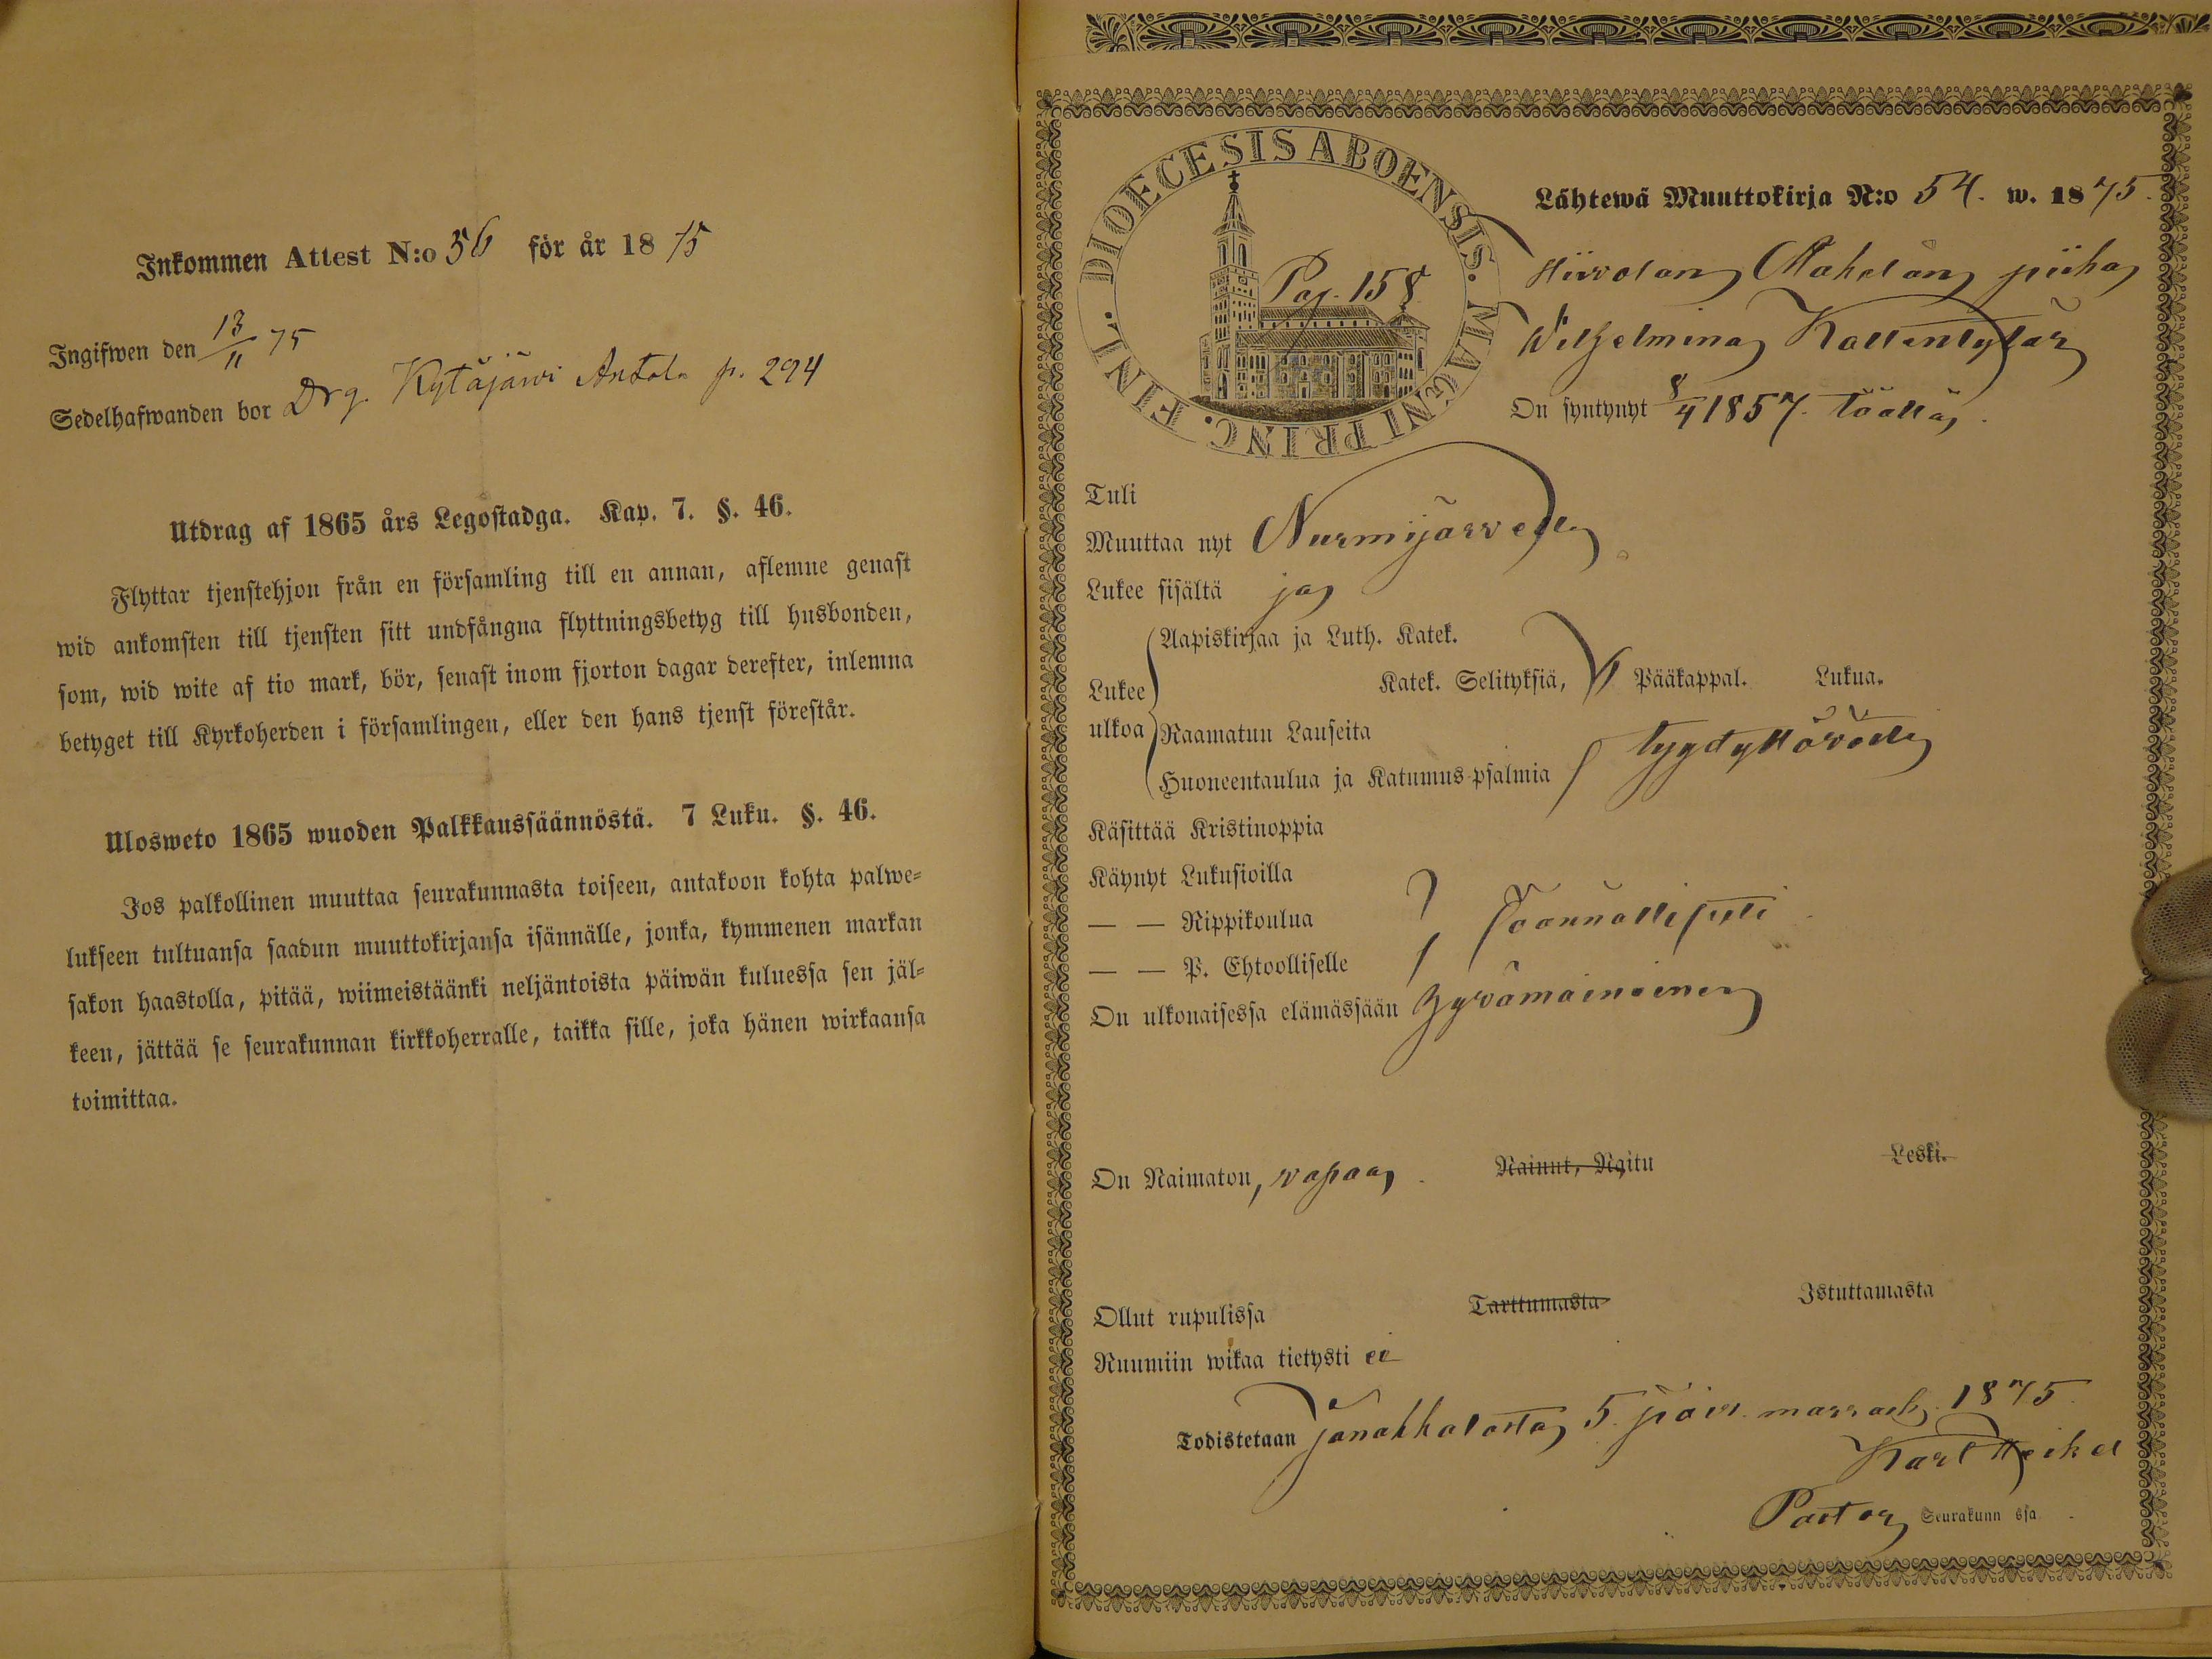 Inkommen Attest N:o 56 för år 1875
Ingifwen den 13/11 75
Sedelhafwanden bor Drg. Kytäjärvi Antola p. 294
Utdrag af 1865 års Legostadga. Kap. 7. §. 46.
Flyttar tjenstehjon från en församling till en annan, aflemne genast
wid ankomsten till tjensten sitt undfångna flyttningsbetyg till husbonden,
som, wid wite af tio mark, bör, senast inom fjorton dagar derefter, inlemna
betyget till Kyrkoherden i församlingen, eller den hans tjenst förestår.
Ulosweto 1865 wuoden Palkkaussäännöstä. 7 Luku. §. 46.
Jos palkollinen muuttaa seurakunnasta toiseen, antakoon kohta palwe-
lukseen tultuansa saadun muuttokirjansa isännälle, jonka, kymmenen markan
sakon haastolla, pitää, wiimeistäänki neljäntoista päiwän kuluessa sen jäl-
keen, jättää se seurakunnan kirkkoherralle, taikka sille, joka hänen wirkaansa
toimittaa.
DIOECESIS ABOENSIS. MAGNI PRINC. FINL.
Pag. 158
Lähtewä Muuttokirja N:o 54. w. 1875.
piika
Wilhelmina Kallentytär
On syntynyt 8/4 1857. täällä.
Tuli
Muuttaa nyt Nurmijärvelle
Lukee sisältä ja
Lukee
ulkoa
Aapiskirjaa ja Luth. Katek.
Katek. Selityksiä, Pääkappal. Lukua.
Raamatun Lauseita
tyydyttävästi
Huoneentaulua ja Katumus-psalmia
Käsittää Kristinoppia
Käynyt Lukusioilla
— — Rippikoulua
säännöllisesti
— — P. Ehtoolliselle
On ulkonaisessa elämässään hyvämaineinen
On Naimaton, vapaa. Nainut, Naitu Leski.
Ollut rupulissa Tarttumasta Istuttamasta
Ruumiin wikaa tietysti ei
Todistetaan Janakkalasta 5. päiv. marrask. 1875.
Karl Heikel
Pastor Seurakunn ssa.